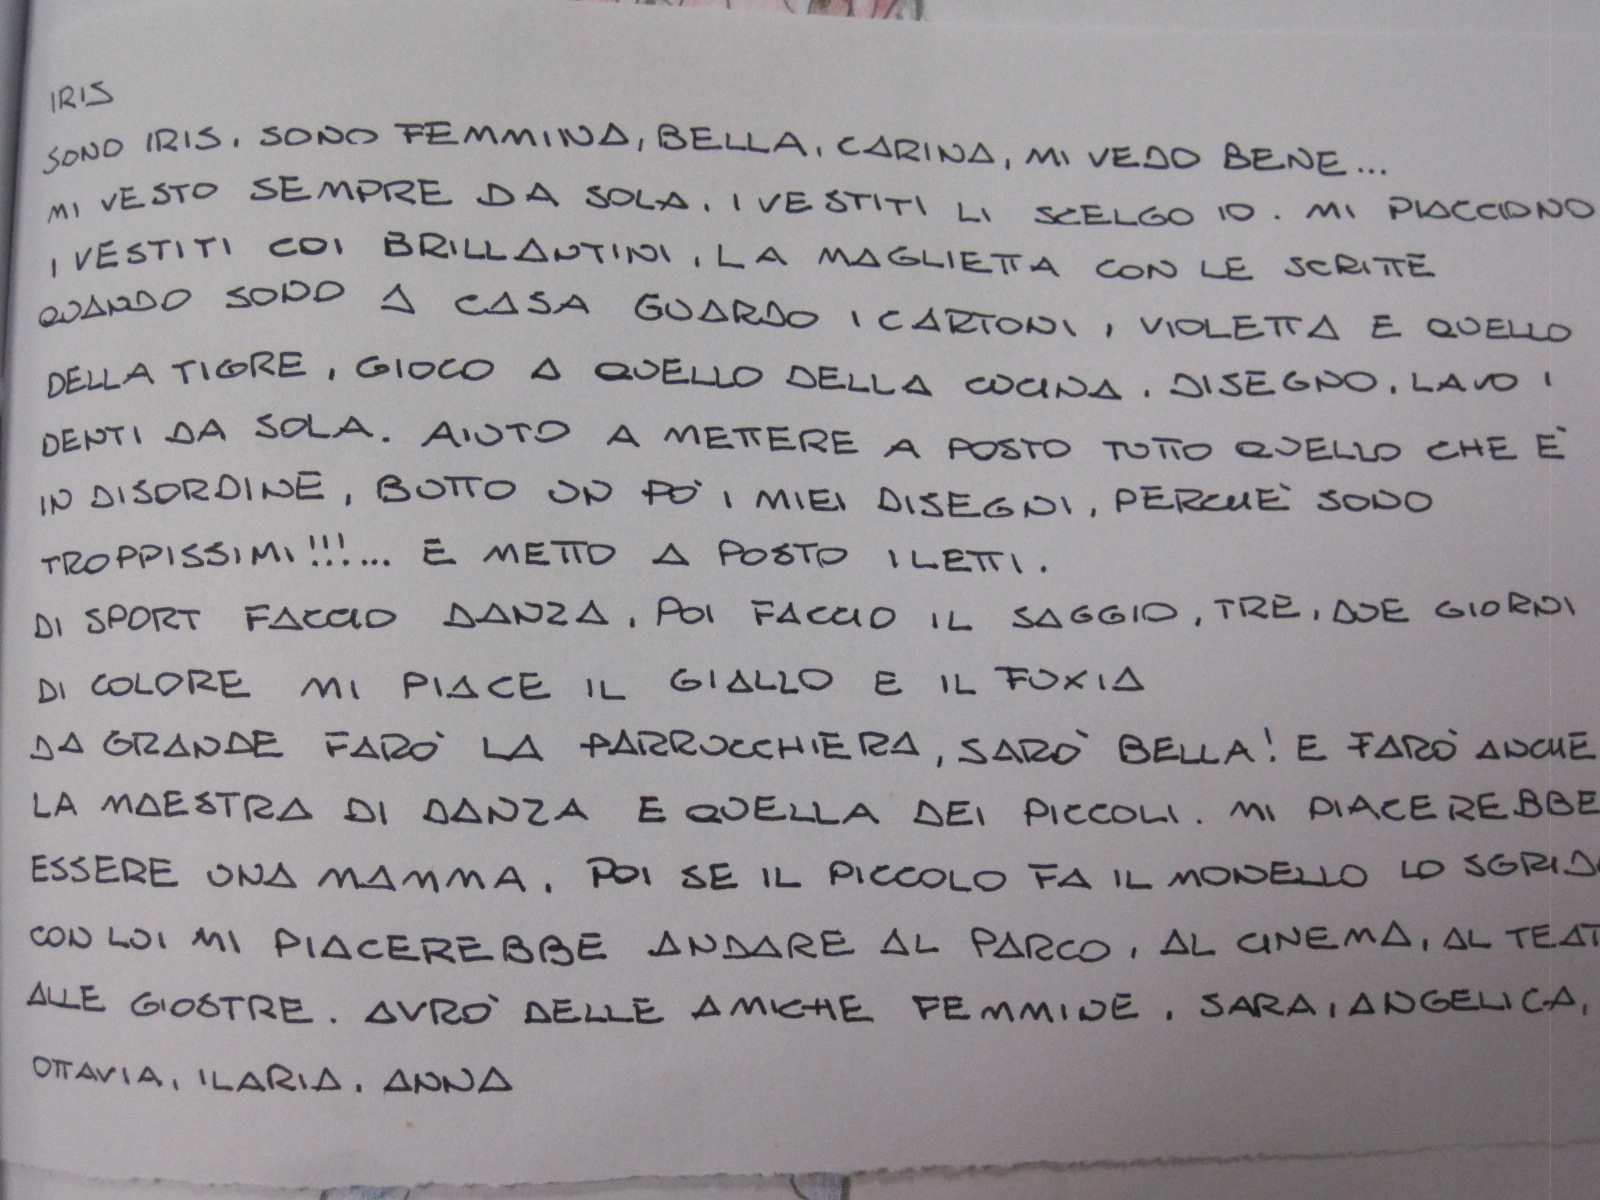 IRIS
SONO IRIS, SONO FEMMINA, BELLA, CARINA, MI VEDO BENE...
MI VESTO SEMPRE DA SOLA, I VESTITI LI SCELGO IO. MI PIACCIONO
I VESTITI COI BRILLANTINI, LA MAGLIETTA CON LE SCRITTE
QUANDO SONO A CASA GUARDO I CARTONI, VIOLETTA E QUELLO
DELLA TIGRE, GIOCO A QUELLO DELLA CUCINA, DISEGNO, LAVO I
DENTI DA SOLA. AIUTO A METTERE A POSTO TUTTO QUELLO CHE È
IN DISORDINE, BUTTO UN PO' I MIEI DISEGNI, PERCHÈ SONO
TROPPISSIMI!!!... E METTO A POSTO I LETTI.
DI SPORT FACCIO DANZA, POI FACCIO IL SAGGIO, TRE, DUE GIORNI
DI COLORE MI PIACE IL GIALLO E IL FUXIA
DA GRANDE FARÒ LA PARRUCCHIERA, SARÒ BELLA! E FARÒ ANCHE
LA MAESTRA DI DANZA E QUELLA DEI PICCOLI. MI PIACEREBBE
ESSERE UNA MAMMA, POI SE IL PICCOLO FA IL MONELLO LO
CON LUI MI PIACEREBBE ANDARE AL PARCO, AL CINEMA, AL
ALLE GIOSTRE. AVRÒ DELLE AMICHE FEMMINE, SARA, ANGELICA,
OTTAVIA, ILARIA, ANNA